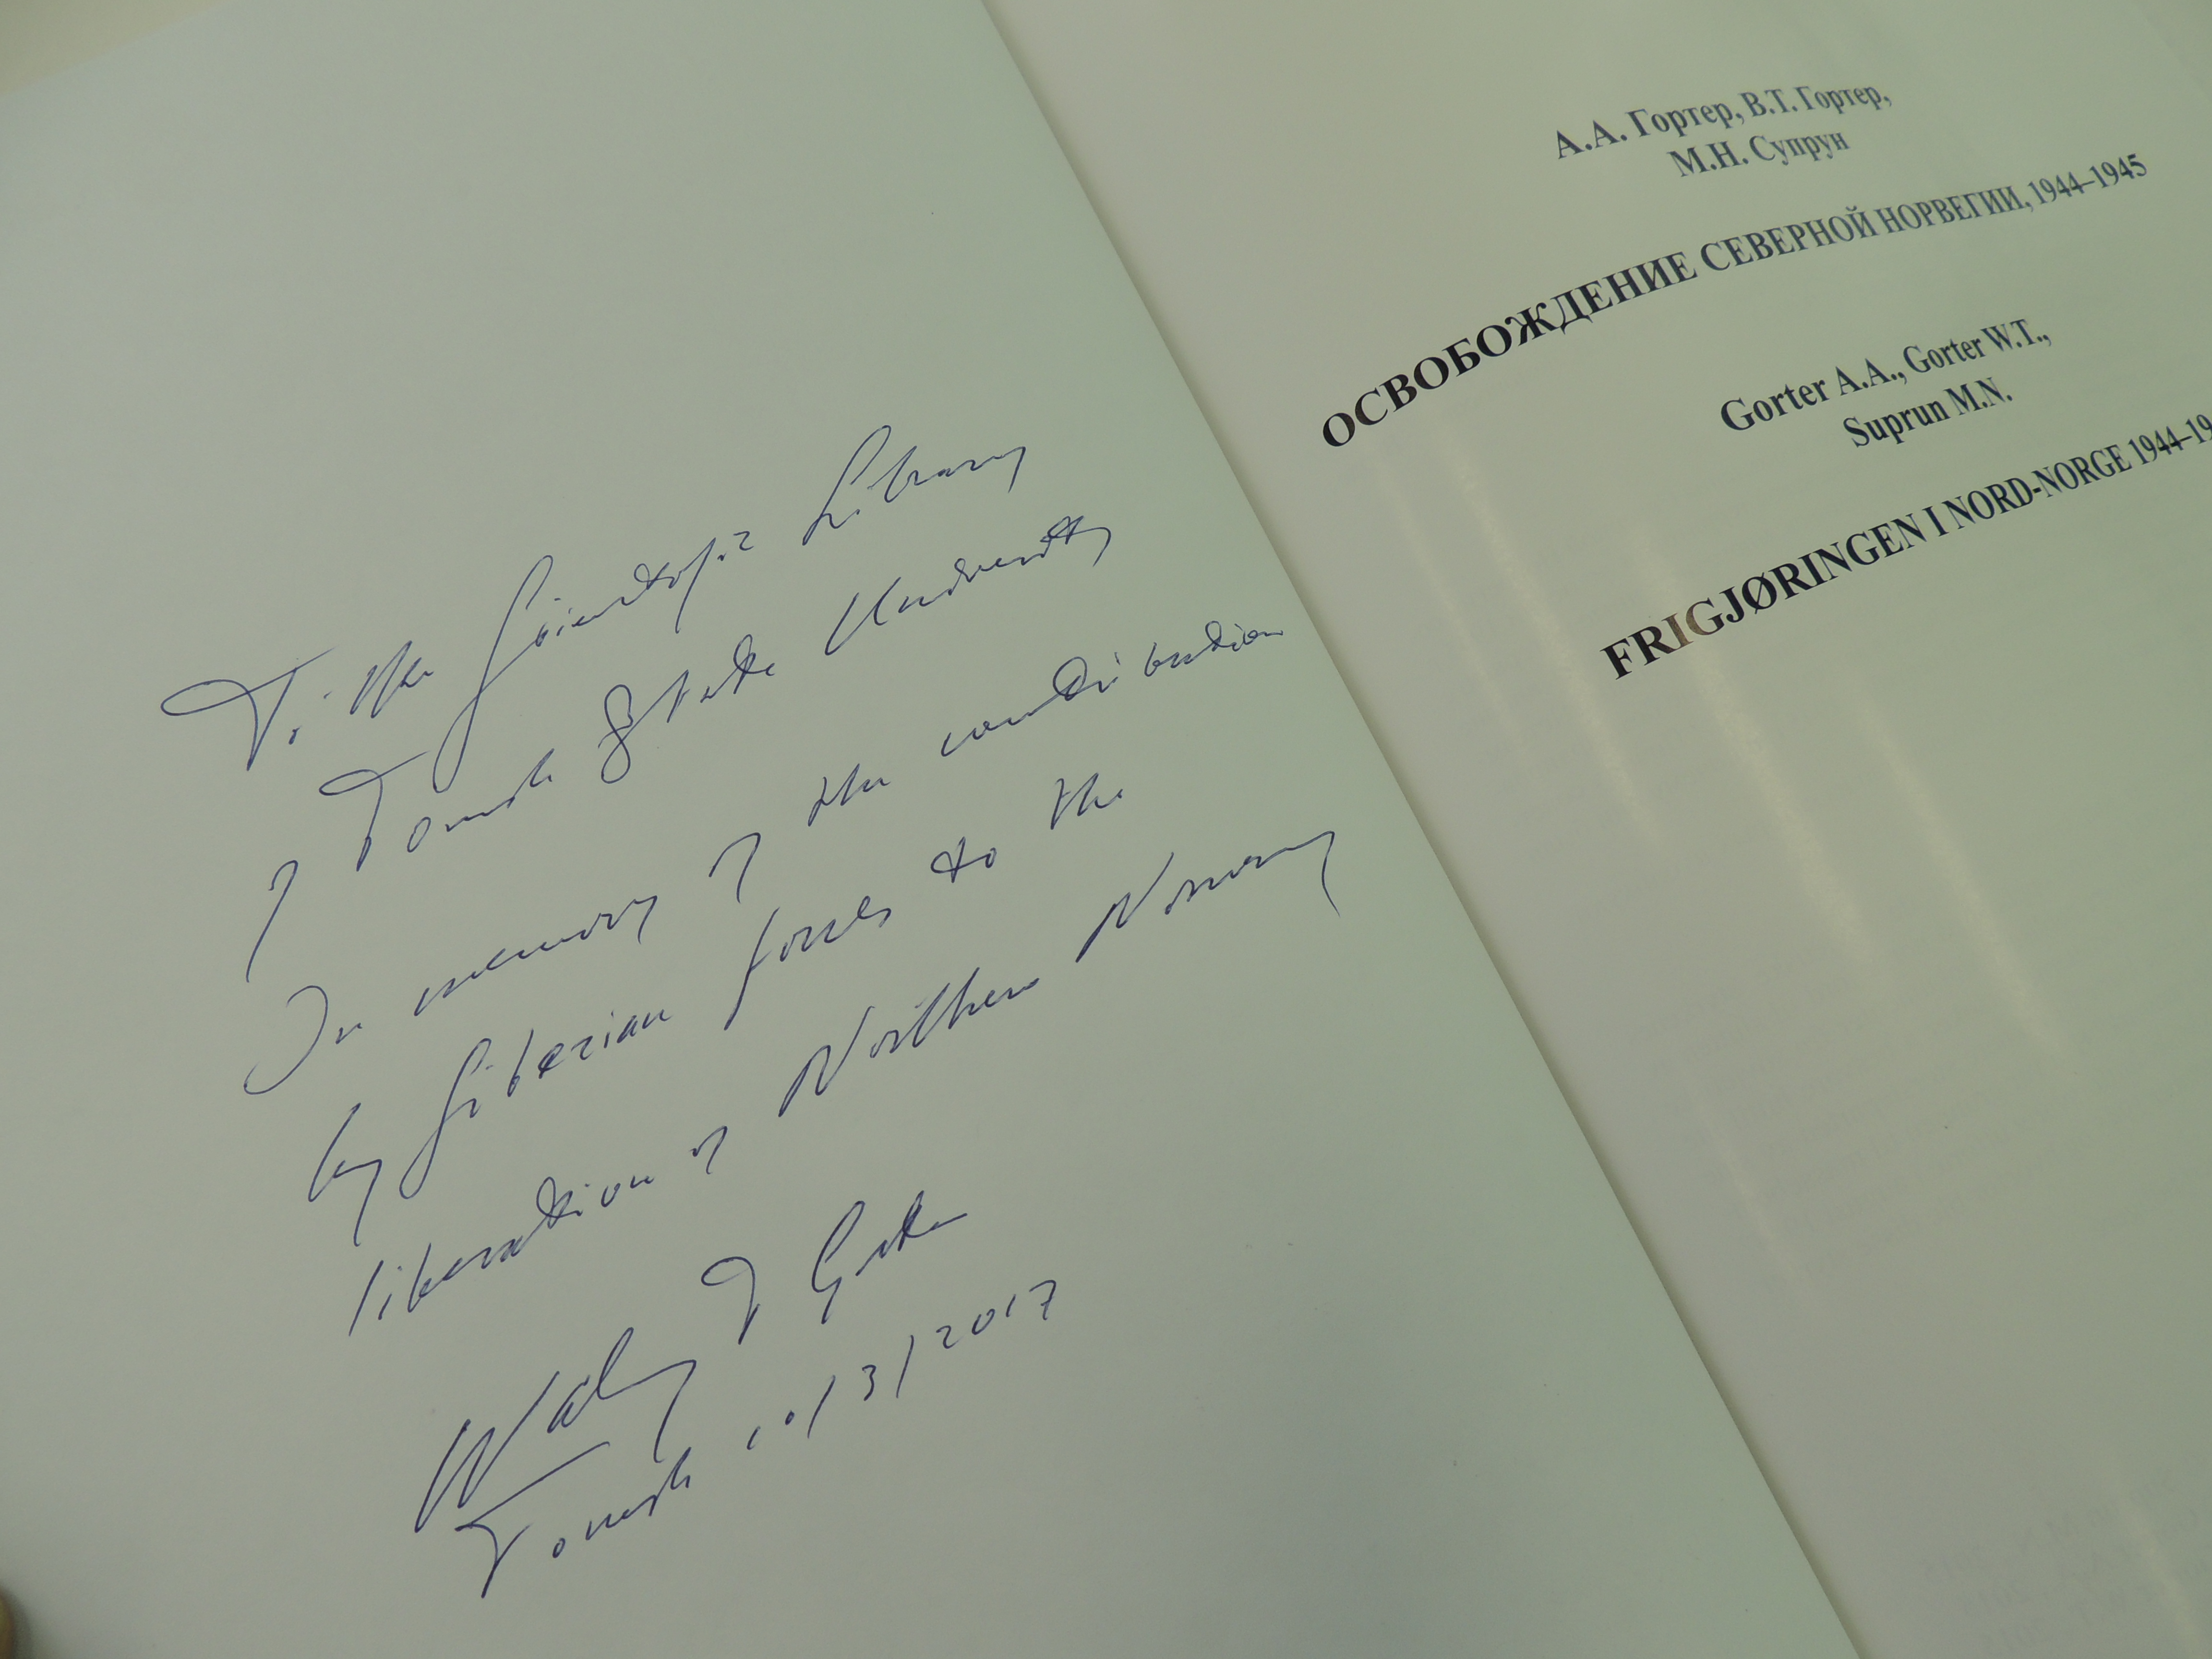 To the Scientific Library
of Tomsk State University
In memory of the contribution
by Siberian forces to the
liberation of Northern Norway
T Gorter
Tomsk 10/3/2017
А.А. Гортер, В.Т. Гортер,
М.Н. Супрун
ОСВОБОЖДЕНИЕ СЕВЕРНОЙ НОРВЕГИИ, 1944–1945
Gorter A.A., Gorter W.T.,
Suprun M.N.
FRIGJØRINGEN I NORD-NORGE 1944–19